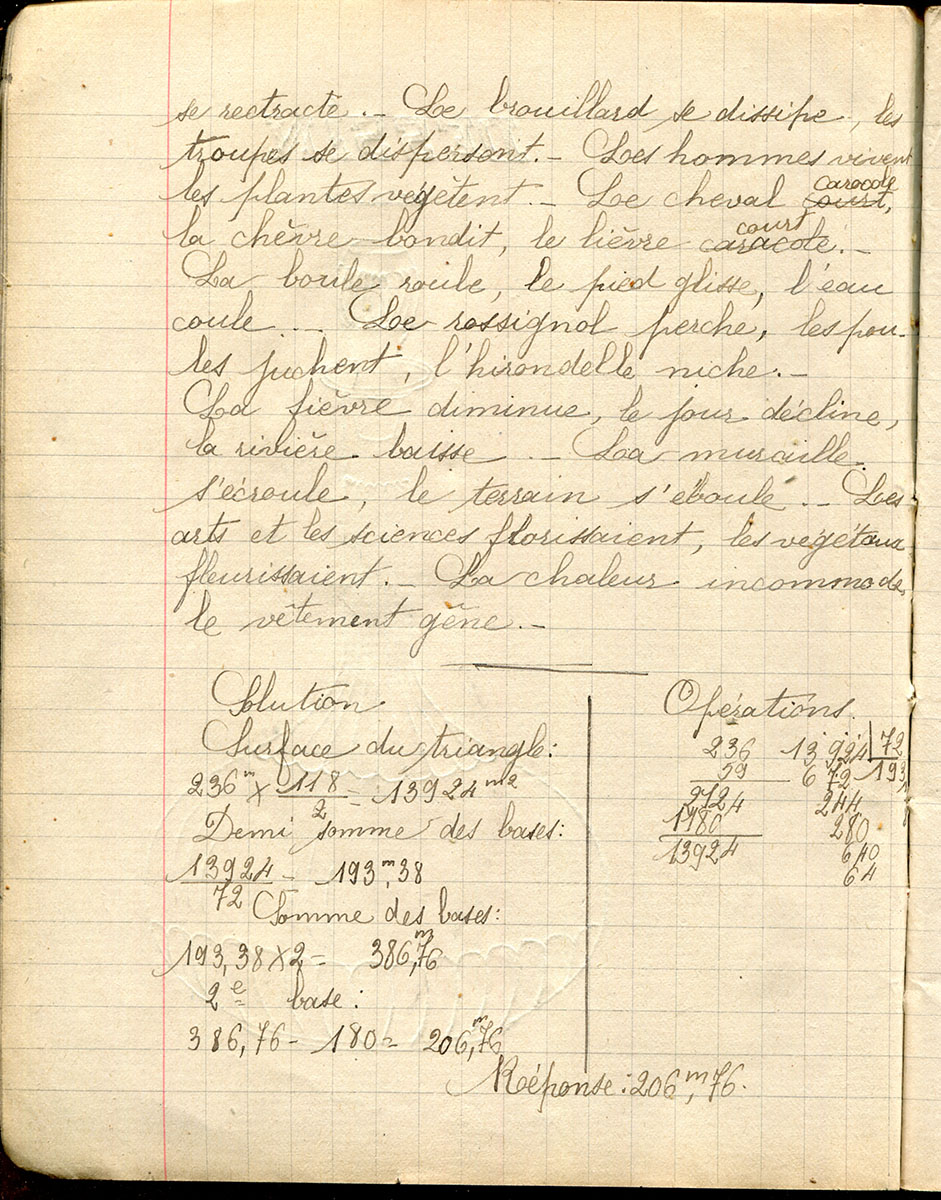 se reetracte. – Le brouillard se dissipe, les
troupes se dispersent. – Les hommes vivent
les plantes végètent. – Le cheval court, caracole
la chèvre bondit, le lièvre caracole. court –
La boule roule, le pied glisse, l'eau
coule. – Le rossignol perche, les pou-
les juchent, l'hirondelle niche. –
La fièvre diminue, le jour décline,
la rivière baisse. – La muraille
s'écroule, le terrain s'éboule. – Les
arts et les sciences florissaient, les végétaux
fleurissaient. – La chaleur incommode,
le vêtement gêne. –
Solution
Surface du triangle:
236m × 118/2 = 13924m2
Demi somme des bases:
13924/72 = 193m,38
Somme des bases:
193,38 × 2 = 386m,76
2e base:
386,76 - 180 = 206m,76
Opérations.
236
59
2124
1180
13924
13924 | 72
672 193,
244
280
640
64
Réponse: 206m,76.